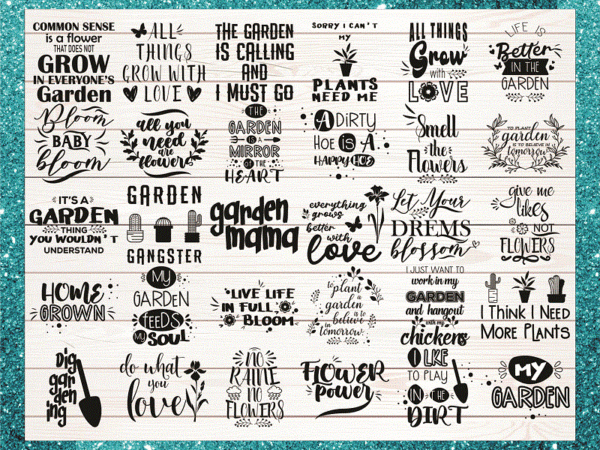 COMMON SENSE
is a flower
THAT DOES NOT
GROW
IN EVERYONE'S
Garden
ALL
THINGS
GROW WITH
LOVE
THE GARDEN
IS CALLING
AND
I MUST GO
SORRY I CAN'T
MY
PLANTS
NEED ME
ALL THINGS
Grow
with
LOVE
LIFE IS
Better
IN THE
GARDEN
Bloom
BABY
bloom
all you
need
are
flowers
THE
GARDEN
IS A
MIRROR
OF THE
HEART
A DIRTY
HOE IS A
HAPPY HOE
Smell
the
Flowers
TO PLANT
garden
IS TO BELIEVE IN
tomorrow
IT'S A
GARDEN
THING
YOU WOULDN'T
UNDERSTAND
GARDEN
GANGSTER
garden
mama
everything
grows
better
with
love
Let Your
DREMS
blossom
give me
likes
NOT
FLOWERS
HOME
GROWN
MY
GARDEN
FEEDS
MY
SOUL
LIVE LIFE
IN FULL
BLOOM
to
plant
a
garden
is to
believe
in
tomorrow
I JUST WANT TO
work in my
GARDEN
and hangout
with my
chickens
I Think I Need
More Plants
dig
gar
den
ing
do what
you
love
NO
RAINE
no
FLOWERS
FLOWER
Power
I LKE
TO PLAY
IN THE
DIRT
MY
GARDEN